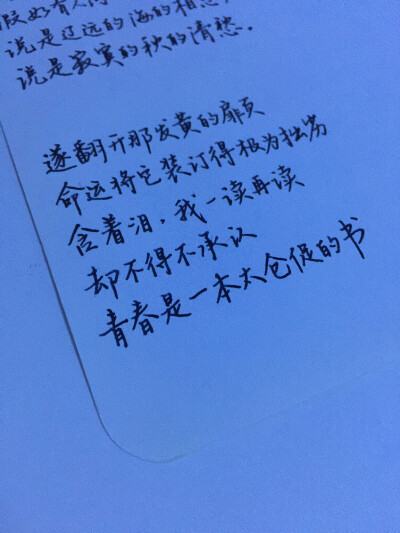 说是辽远的海的相思，
说是寂寞的秋的清愁．
遂翻开那发黄的扉页
命运将它装订得极为拙劣
含着泪，我一读再读
却不得不承认
青春是一本太仓促的书